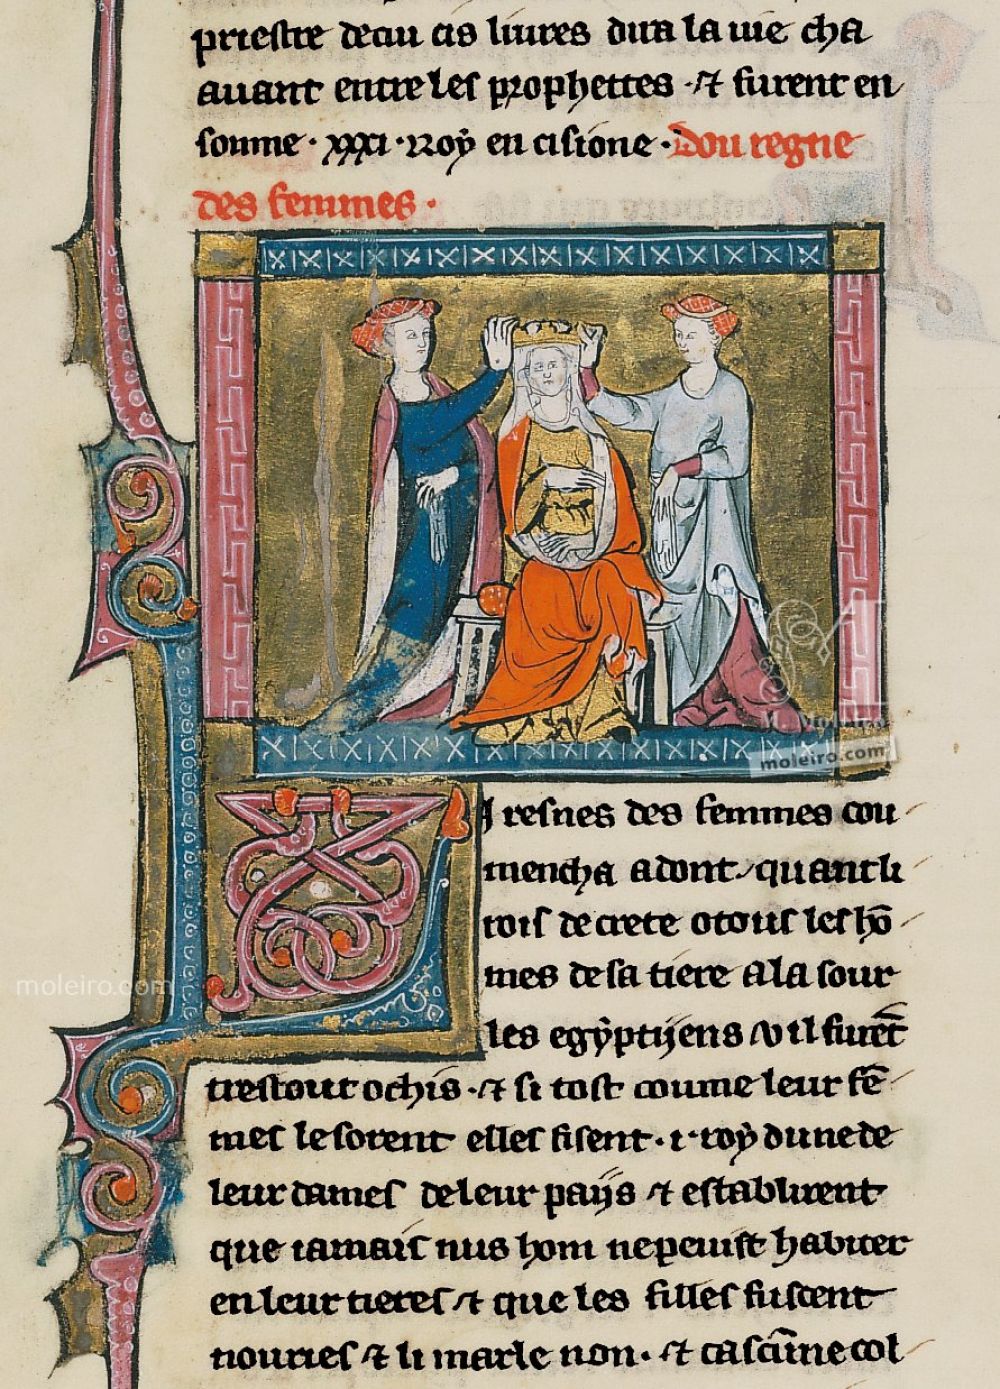 priestre de cui cis liures dira la uie cha
auant entre les prophettes · ⁊ furent en
somme · xxxi · roy en cisione · Dou regne
des femmes ·
M. Moleiro
moleiro.com
Li resnes des femmes cou
mencha adont quant li
rois de crete otous les hō
mes de sa tiere ala sour
les egyptijens v il furēt
trestout ochis · ⁊ si tost coume leur fē
mes le sorent elles fisent · i · roy dune de
leur dames de leur paijs ⁊ establirent
que iamais nus hom ne peuist habiter
en leur tieres ⁊ que les filles fuscent
nouries ⁊ li marle non · ⁊ cascūne col
moleiro.com